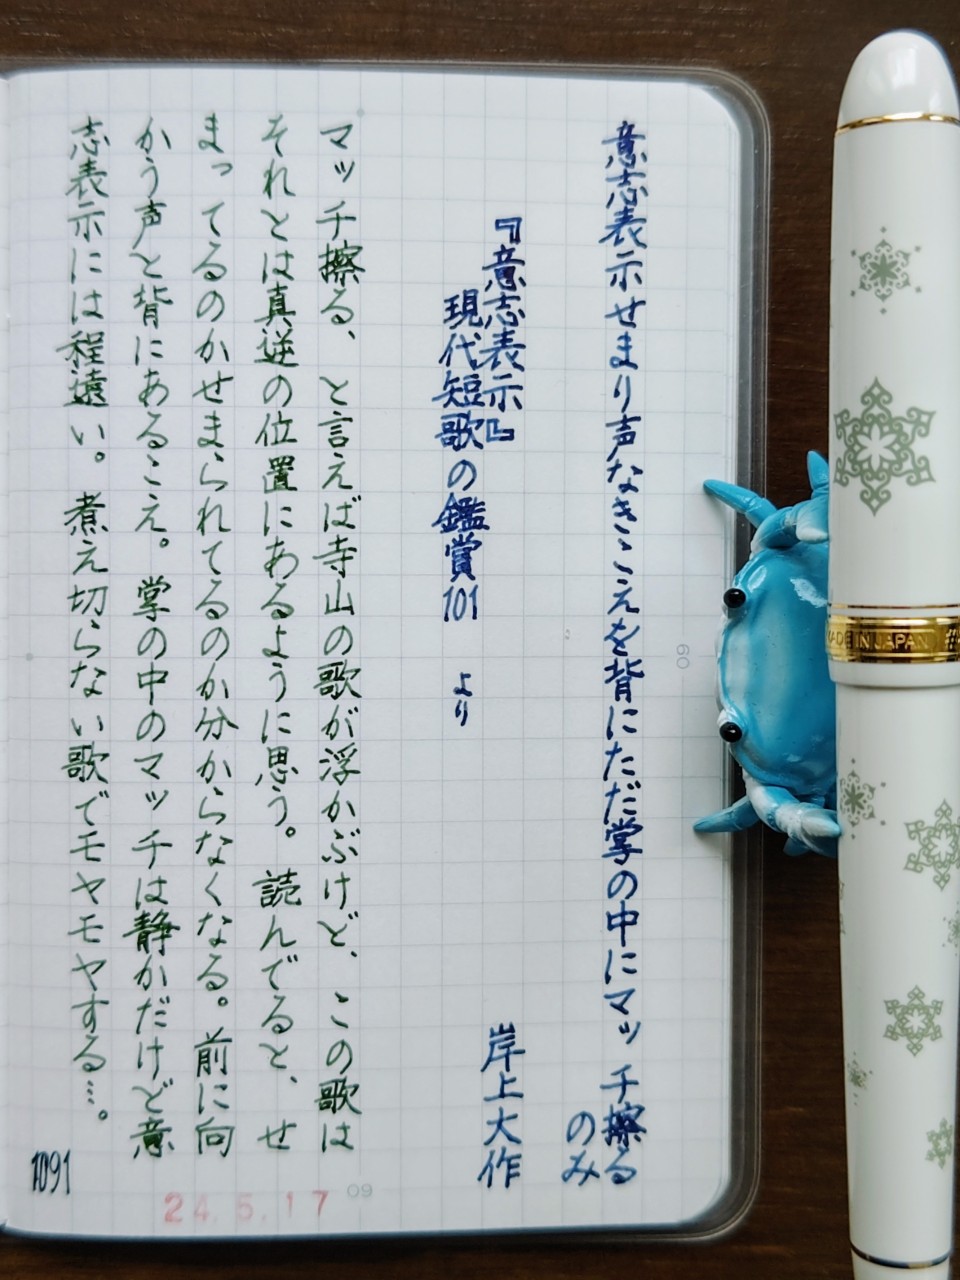 意志表示せまり声なきこえを背にただ掌の中にマッチ擦る
のみ
『意志表示』 岸上大作
現代短歌の鑑賞101 より
マッチ擦る、と言えば寺山の歌が浮かぶけど、この歌は
それとは真逆の位置にあるように思う。読んでると、せ
まってるのかせまられてるのか分からなくなる。前に向
かう声と背にあるこえ。掌の中のマッチは静かだけど意
志表示には程遠い。煮え切らない歌でモヤモヤする…。
1091
24.5.17
09
60
MADE IN JAPAN